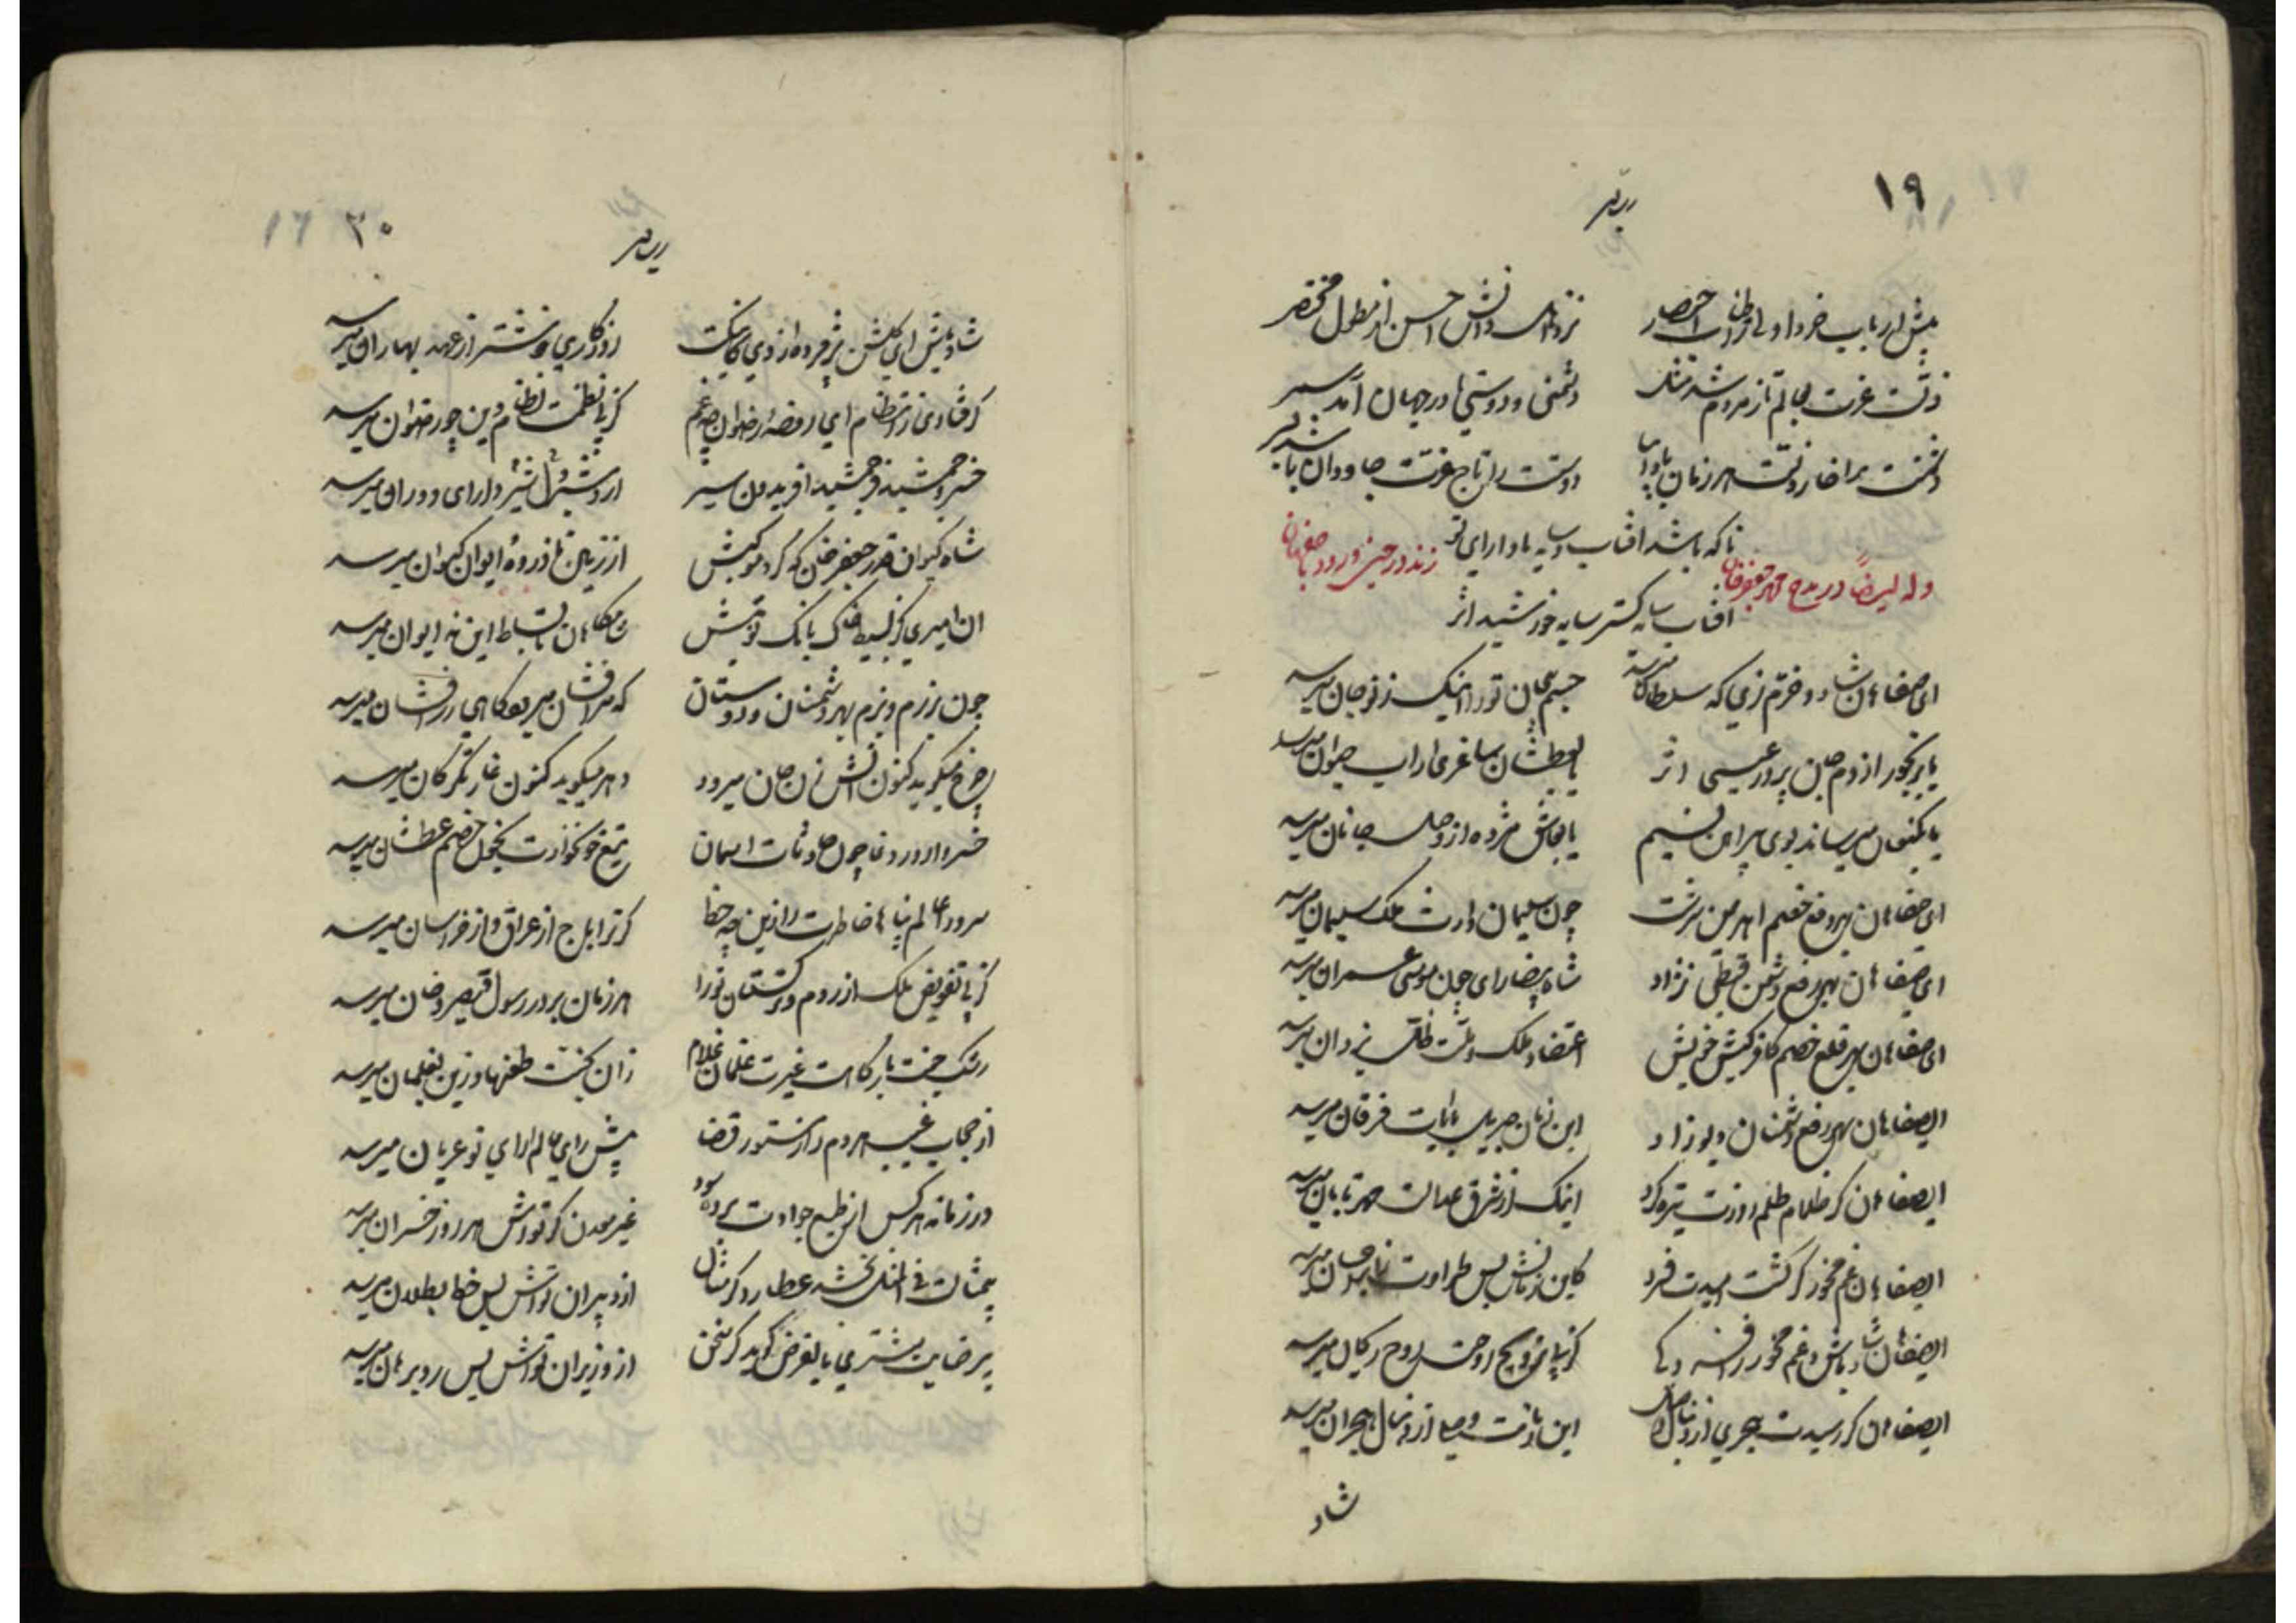 ١٩
پیش ارباب خرد اولی ز اطناب اختصار نزد اهل دانش احسن از مطول مختصر
ذلت عزت بعالم تا ز مردم شد مثل دشمنی و دوستیها در جهان آمد سمر
دشمنت بر سر خار ذلت هر زمان دوستت را تاج عزت جاودان بادا بسر
تا که باشد آفتاب و سایه بادا رای تو
وله ایضاً در مدح محمد جعفرخان زند در حین ورود باصفهان
آفتاب سایه گستر سایه خورشید اثر
ای صفاهان شاد و خرم زی که سلطان میرسد جسم بیجان تو را اینک ز نو جان میرسد
یا برنجور از دم جان پرور عیسی اثر یا بعطشان ساغری از آب حیوان میرسد
یا بکنعان میرساند بوی پیراهن نسیم یا بعاشق مژده از وصل جانان میرسد
ای صفاهان بهر دفع خصم اهرمن سرشت چون سلیمان وارث ملک سلیمان میرسد
ای صفاهان بهر رفع دشمن قبطی نژاد شاه بیضا رای چون موسی عمران میرسد
ای صفاهان بهر قلع خصم کافر کیش خویش اعتضاد ملک و ملت ظل یزدان میرسد
ای صفاهان بهر رفع دشمنان دیو زاد این زمان جبریل با آیات فرقان میرسد
ای صفاهان گر ظلام ظلم روزت تیره کرد اینک از شرق عدالت مهر تابان میرسد
ای صفاهان غم مخور گر کشت امیدت فسرد کاین زمانش بس طراوت ز ابر میرسد
ای صفاهان شاد باش و غم مخور کز پی ترویح روحت روح ریحان میرسد
ای صفاهان گر رسیدت هجری از دنبال وصل این زمانت وصل از دنبال هجران میرسد
شاد
٢٠
شاد باش ای گلشن پژمرده از دی کاینکت روزگاری خوشتر از عهد بهاران میرسد
گر فتادی ز انتظام ای روضه رضوان چه غم کز پی نظمت نظام دین چو رضوان میرسد
خسرو جمشید فر جمشید افریدون سیر اردشیر دارای دوران میرسد
شاه کیوان قدر جعفر خان که گرد موکبش از زمین تا ذروه ایوان کیوان میرسد
آن امیری کز بسیط خاک بانگ نوبتش شامگاهان تا بساط این نه ایوان میرسد
چون برزم و بزم بهر دشمنان و دوستان گه سرافشان میرود گاهی زرافشان میرسد
چرخ میگوید کنون آتش زن جان میرود دهر میگوید کنون غارتگر کان میرسد
خسروا در روز وغا چون حادثات آسمان تیغ خونخوارت بخون خصم عطشان میرسد
سرورا عالم پناها خاطرت را زین چه حظ کت را باج از عراق و از خراسان میرسد
کز پی تفویض ملک از روم و ترکستان تو را هر زمان بر در رسول قیصر و خان میرسد
رشک جنت بارگاهت غیرت غلمان غلام زان بجنت طعنها و زین بغلمان میرسد
از حجاب غیب هردم راز مستور قضا پیش رای عالم آرای تو عریان میرسد
در زمانه هر کس از طبع جوادت برده سود غیر معدن کز تواش هر روز خسران میرسد
بیمثالت فی المثل بخشد عطارد گر مثال از دبیران تواش بس خط بطلان میرسد
بیرضایت مشتری بالفرض گوید گر سخن از وزیران تواش بس رد برهان میرسد